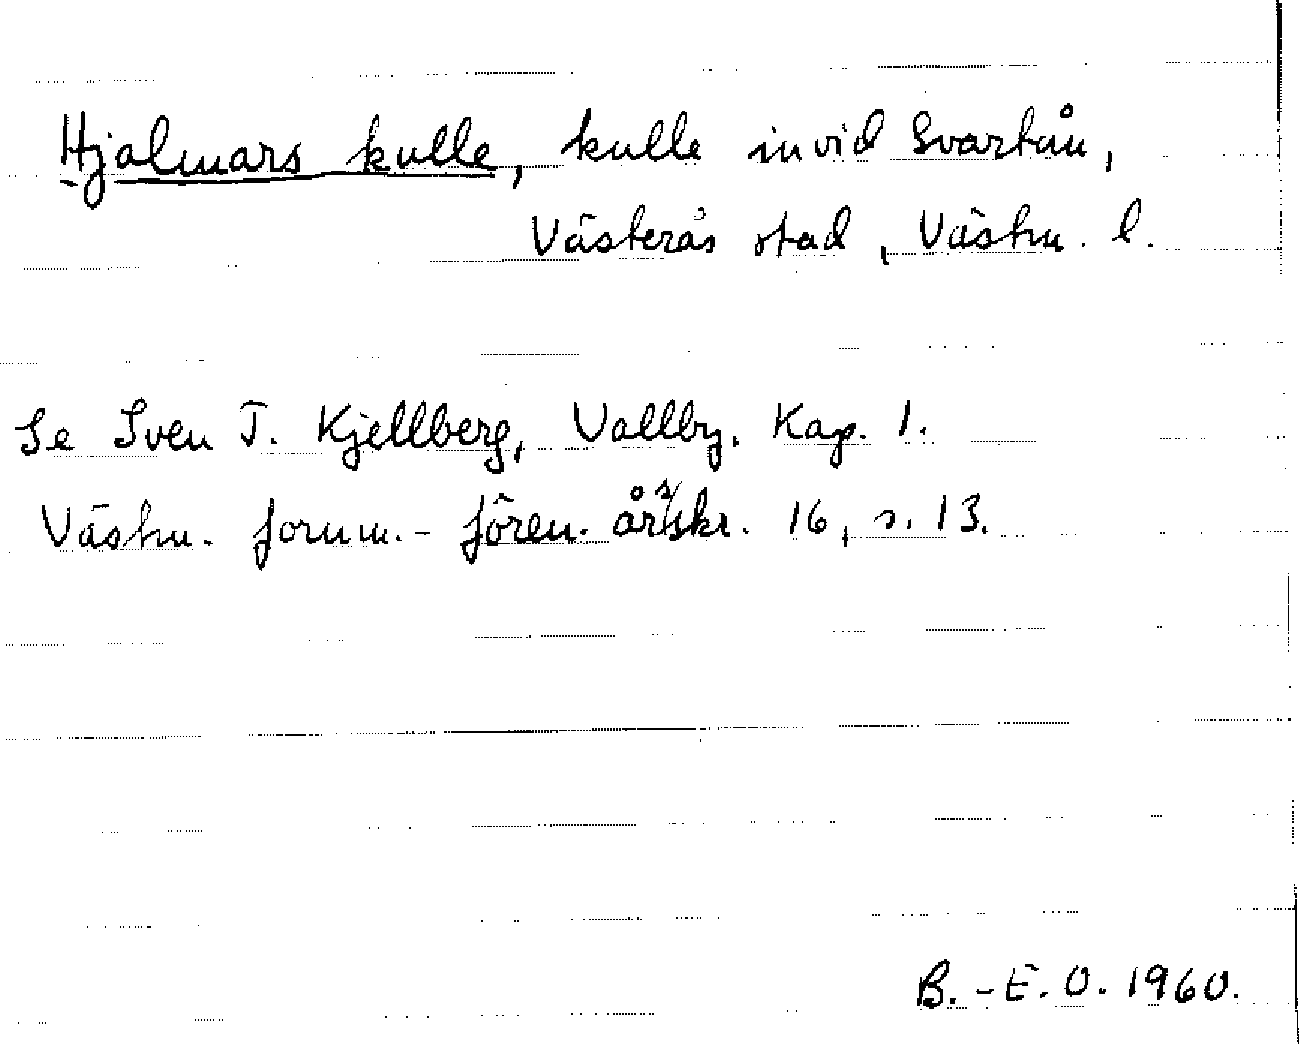 Hjalmars kulle, kulle invid Svartån,
Västerås stad, Västm. l.
Se Sven T. Kjellberg, Vallby. Kap. 1.
Västm. fornm.-fören. årsskr. 16, s. 13.
B.-E. O. 1960.